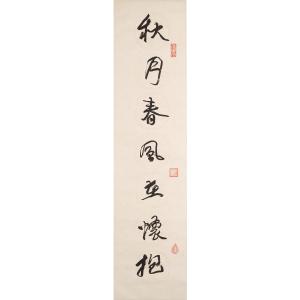 秋月春風在懷抱